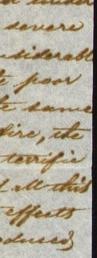 under
severe
nsiderable
poor
same
fire, the
terrific
d all this
effects
oduced